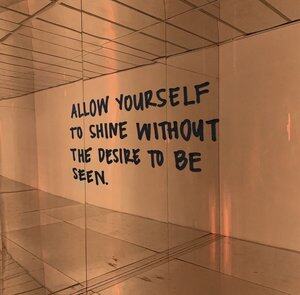 ALLOW YOURSELF
TO SHINE WITHOUT
THE DESIRE TO BE
SEEN.